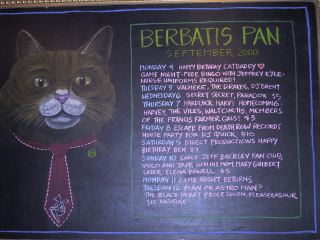 BERBATIS PAN
SEPTEMBER 2000
MONDAY 4 HAPPY BIRTHDAY CATDADDY
GAME NIGHT-FREE BINGO WITH JEFFREY KYLE-
NURSE UNIFORMS REQUIRED!
TUESDAY 5 VALHERE, THE DRAKES, DJ BRENT
WEDNESDAY 6 SECRET SECRET, PARACHUTE $5
THURSDAY 7 HARDROCK HARV'S HOMECOMING:
HARVEY, THE VILES, WALTCURTIS, MEMBERS
OF THE FRANCIS FARMER GALS! $3
FRIDAY 8 ESCAPE FROM DEATH ROW RECORDS
HOUSE PARTY FOR DJ QUICK, $40
SATURDAY 9 DIRECT PRODUCTIONS HAPPY
BIRTHDAY BEN $9
SUNDAY 10 EARLY: JEFF BUCKLEY FAN CLUB,
VIDEO AND TAPE WITH HIS MOM MARY GUIBERT
LATER: ELENA POWELL $5
MONDAY 11 GAME NIGHT RETURNS
TUESDAY 12 MAN OR ASTRO MAN?
THE BLACK HEART PROCESSION, PLEASEEASAUR
$10 FASTIXX